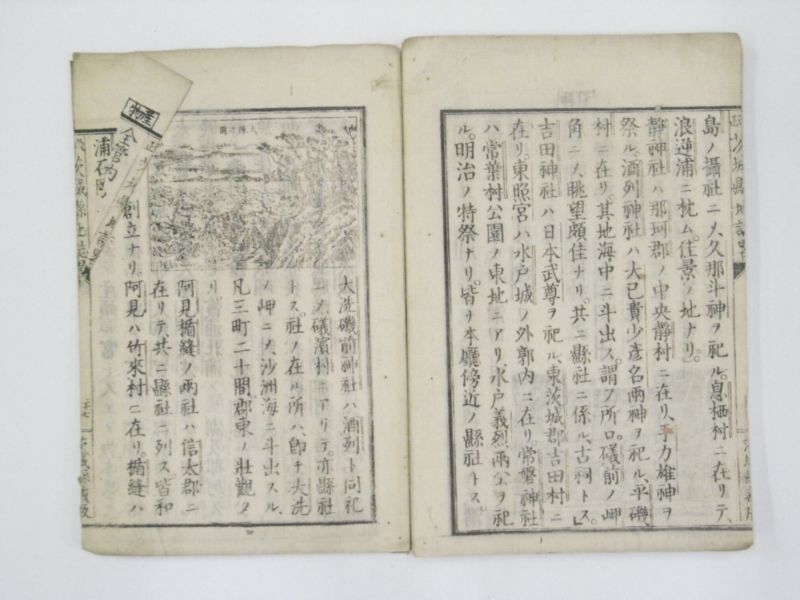 島ノ攝社ニ〆久那斗神ヲ祀ル。息栖村ニ在リテ、
浪逆浦ニ枕ム。佳景ノ地ナリ。
靜神社ハ那珂郡ノ中央靜村ニ在リ、手力雄神ヲ
祭ル。酒列神社ハ大已貴少彦名兩神ヲ祀ル、平磯
村ニ在リ。其地海中ニ斗出ス。謂フ所ロ磯前ノ岬
角ニ〆眺望頗佳ナリ。共ニ縣社ニ係ル、古祠トス。
吉田神社ハ日本武尊ヲ祀ル、東茨城郡吉田村ニ
在リ。東照宮ハ水戸城ノ外郭内ニ在リ。常磐神社
ハ常葉村公園ノ東地ニアリ、水戸義烈兩公ヲ祀
ル。明治ノ特祭ナリ。皆ナ本廳傍近ノ縣社トス。
大洗磯前神社ハ酒列ト同祀
ニ〆、磯濱村ニアリテ、亦縣社
トス。社ノ在ル所ハ卽チ大洗
ノ岬ニ〆、沙洲海ニ斗出スル、
凡三町二十間郡東ノ壯觀タ
リ
阿見楯縫ノ兩社ハ信太郡ニ
在リテ共ニ縣社ニ列ス皆和
創立ナリ。阿見ハ竹來村ニ在リ。楯縫ハ
物産